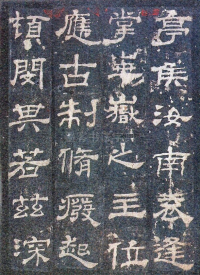 亭侯汝南袁逢
掌華嶽之主位
應古制脩癈起
頓閔其若茲深